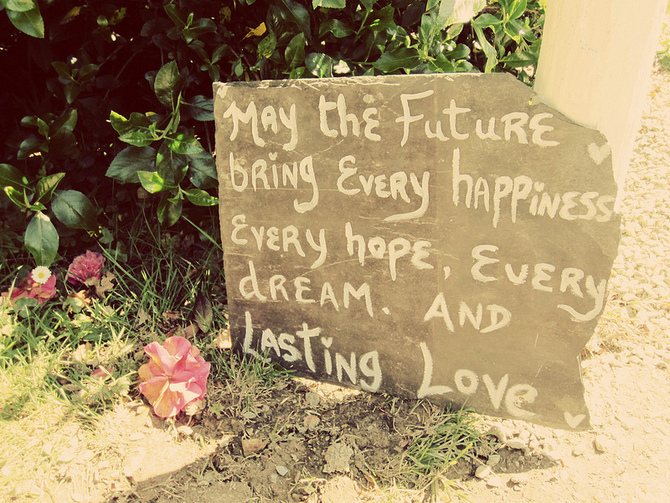 May the Future
bring Every happiness
Every hope, Every
dream. And
Lasting Love